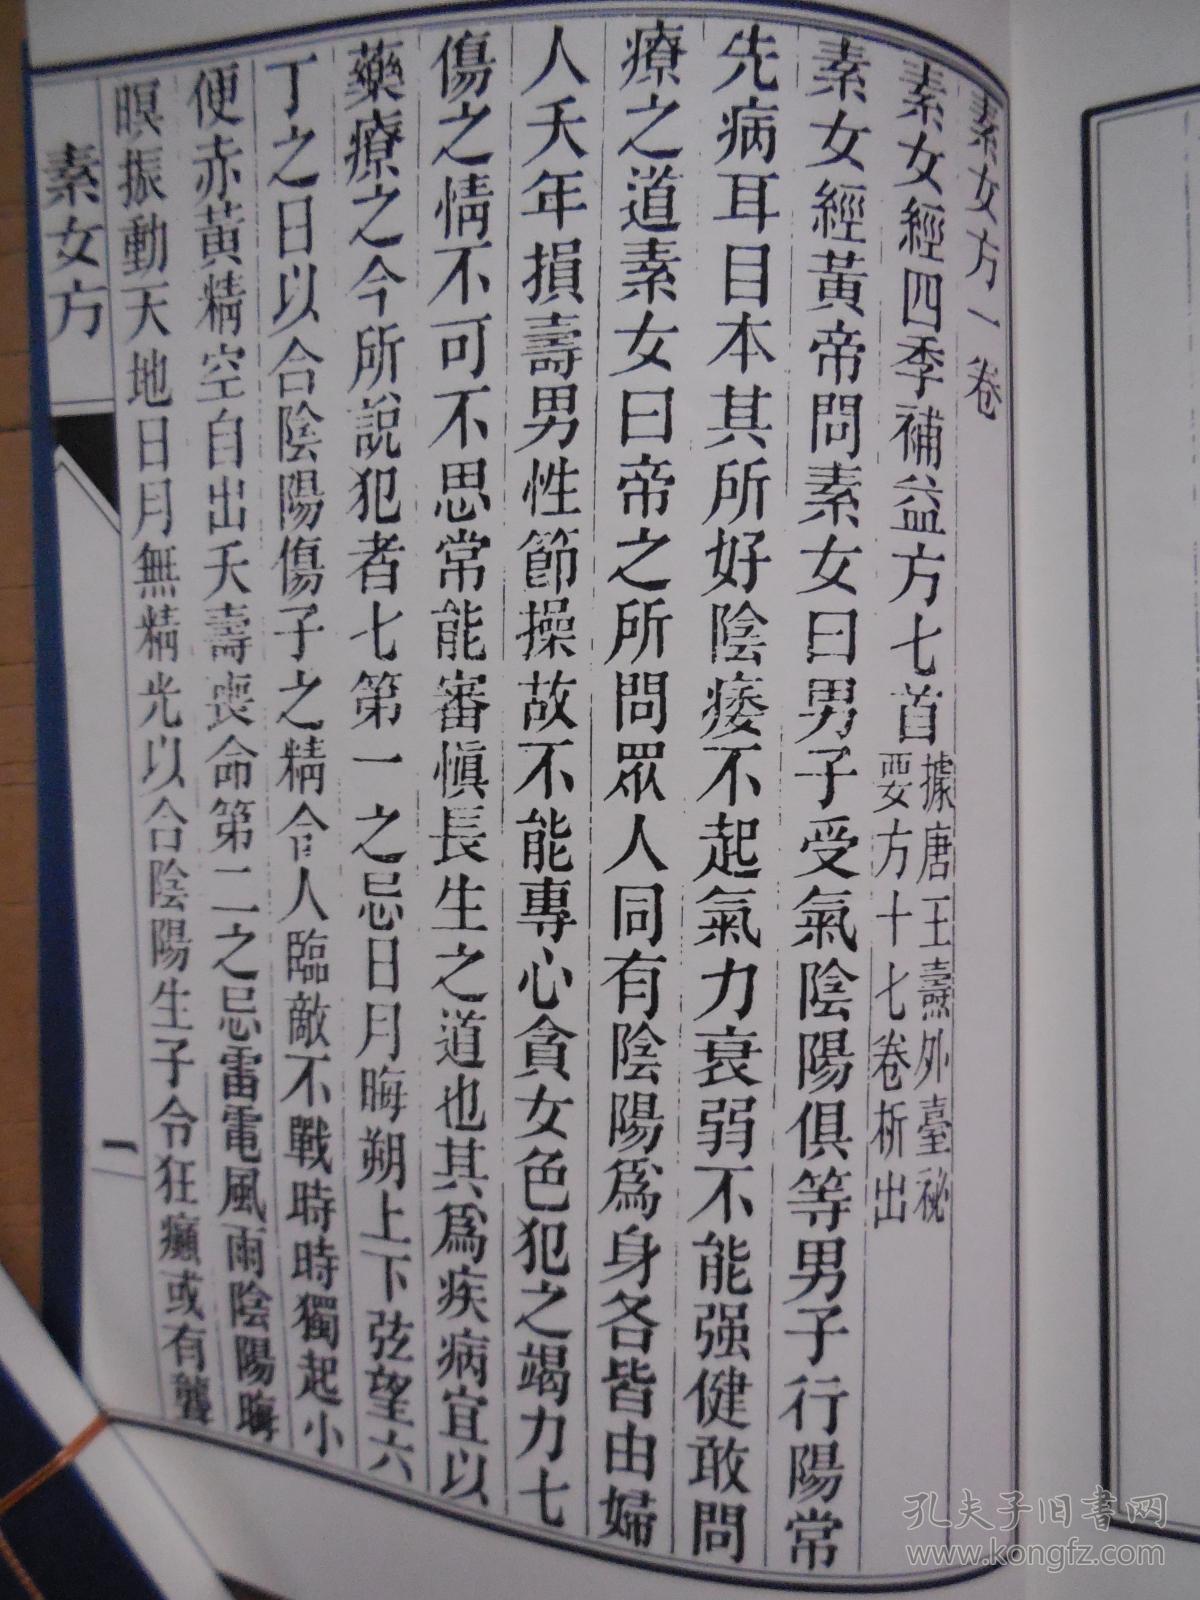 素女方一卷
素女經四季補益方七首據唐王燾外臺祕
要方十七卷析出
素女經黃帝問素女曰男子受氣陰陽俱等男子行陽常
先病耳目本其所好陰痿不起氣力衰弱不能强健敢問
療之道素女曰帝之所問眾人同有陰陽爲身各皆由婦
人夭年損壽男性節操故不能專心貪女色犯之竭力七
傷之情不可不思常能審愼長生之道也其爲疾病宜以
藥療之今所說犯者七第一之忌日月晦朔上下弦望六
丁之日以合陰陽傷子之精令人臨敵不戰時時獨起小
便赤黃精空自出夭壽喪命第二之忌雷電風雨陰陽晦
暝振動天地日月無精光以合陰陽生子令狂癲或有聾
素女方
一
孔夫子旧书网
www.kongfz.com